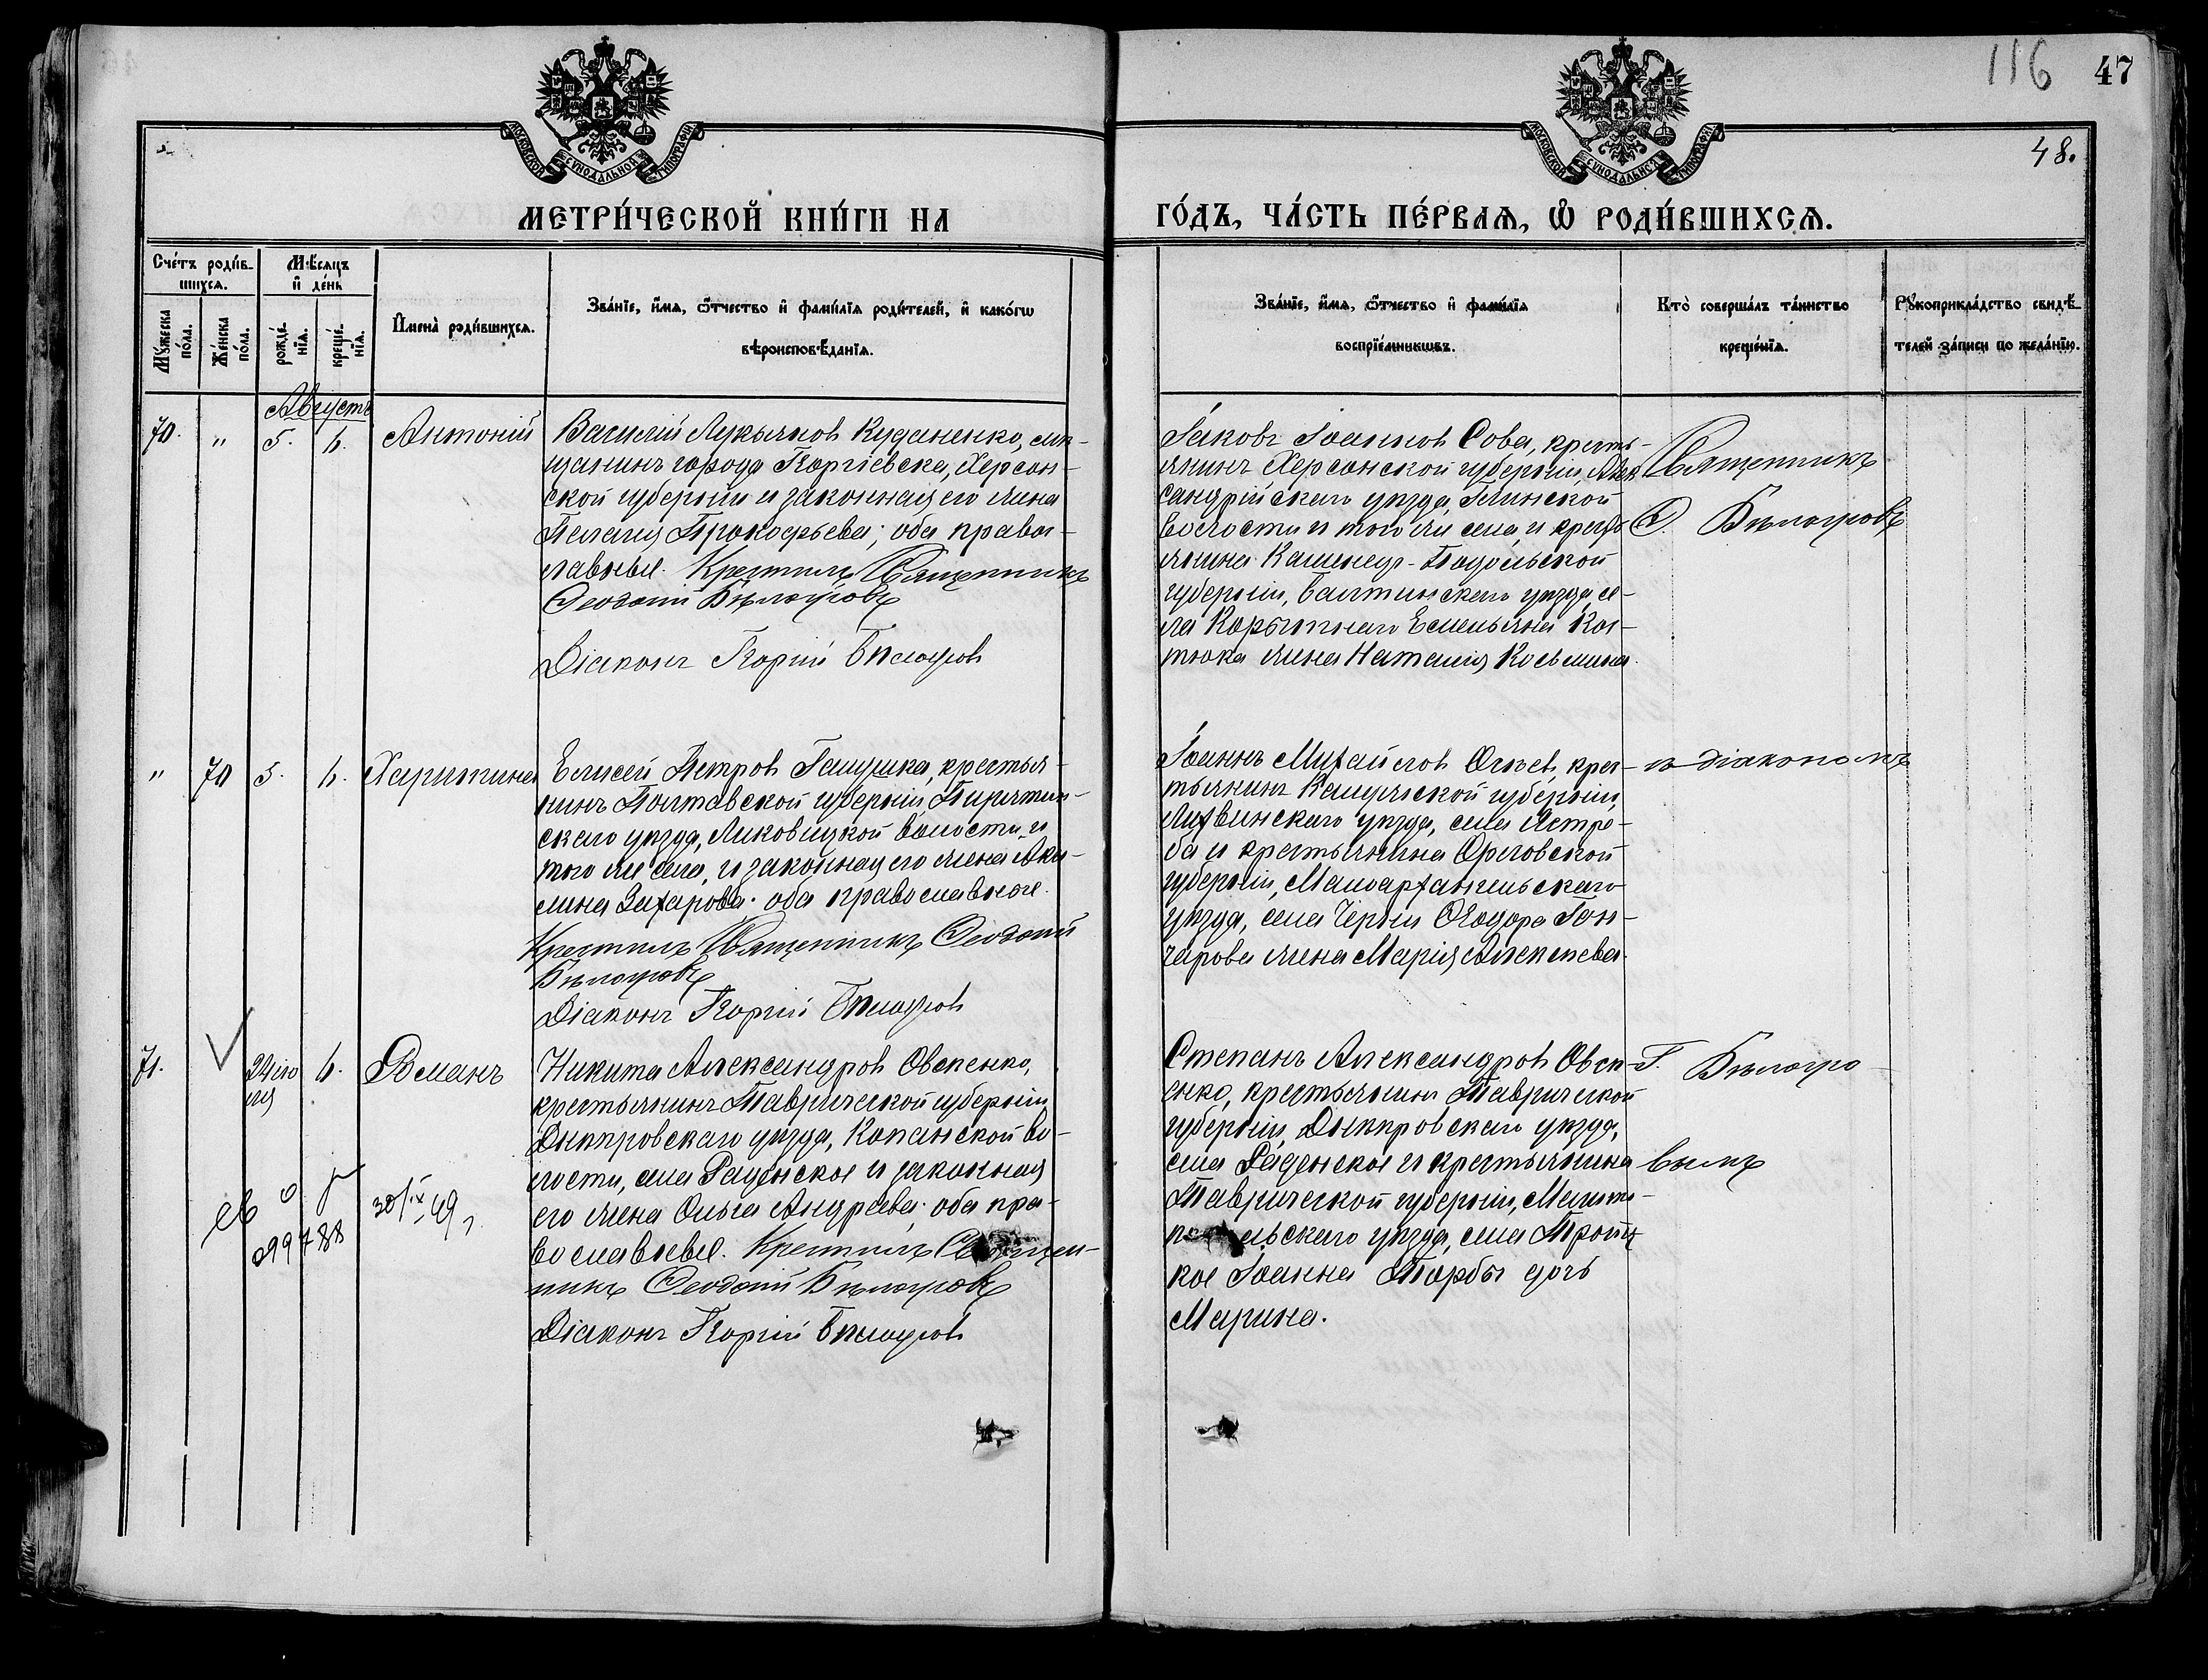 116 47
48.
МОСКОВСКОЙ СѴНОДАЛЬНОЙ ТИПОГРАФІИ
МОСКОВСКОЙ СѴНОДАЛЬНОЙ ТИПОГРАФІИ
МЕТРИ́ЧЕСКОЙ КНИ́ГИ НА
ГО́ДЪ, ЧА́СТЬ ПЕ́РВАѦ, Ѽ РОДИ́ВШИХСѦ.
Сче́тъ роди́в-
шихсѧ.
Му́жеска по́ла.
Же́нска по́ла.
Мѣ́сѧцъ
и҆ де́нь
рожде́-
нїѧ.
креще́-
нїѧ.
И҆мена̀ роди́вшихсѧ.
Зва́нїе, и҆́мѧ, ѻ҆́тчество и҆ фами́лїѧ роди́телей, и҆ како́гѡ
вѣроисповѣ́данїѧ.
Зва́нїе, и҆́мѧ, ѻ҆́тчество и҆ фами́лїѧ
воспрїе́мникѡвъ.
Кто̀ соверша́лъ та́инство
креще́нїѧ.
Рꙋкоприкла́дство свидѣ́-
телей за́писи по жела́нїю.
Августъ
70. " 5. 6. Антоній
Василій Лукьяновъ Куданенко, мѣ-
щанинъ города Георгіевска, Херсон-
ской губерніи и законная его жена
Пелагія Прокофьева; оба право-
славные. Крестилъ Священникъ
Феодоктій Бѣлогуровъ
Діаконъ Георгій Бѣлогуровъ
Іаковъ Іоанновъ Сова, кресть-
янинъ Херсонской губерніи, Алек-
сандрійскаго уѣзда, Глинской
волости и того же села и кресть-
янина Каменец-Подольской
губерніи, Балтинскаго уѣзда, се-
ла Корытнаго Емельяна Ко-
тюка жена Наталія Косьмина.
Священникъ
Ѳ. Бѣлогуровъ
" 70 5. 6. Харитина
Елисей Петровъ Галушка, крестья-
нинъ Полтавской губерніи Пирятин-
скаго уѣзда, Лиховицкой волости и
того же села, и законная его жена Аки-
лина Захарова; оба православные.
Крестилъ Священникъ
Бѣлогуровъ
Діаконъ Георгій Бѣлогуровъ
Іоаннъ Михайловъ Огневъ, крес-
тьянинъ Калужской губерніи,
Лихвинскаго уѣзда, села Ястре-
ба и крестьянина Орловской
губерніи, Малоархангельскаго
уѣзда, села Черни Ѳеодора Гон-
чарова жена Марія Алексѣева.
съ діакономъ
71. 22 ію
ля 6. Романъ
Никита Александровъ Овсѣенко,
крестьянинъ Таврической губерніи
Днѣпровскаго уѣзда, Копанской во-
лости, села Раденское и законная
его жена Ольга Андреева; оба пра-
вославные. Крестилъ Священ-
никъ Бѣлогуровъ
Діаконъ Георгій Бѣлогуровъ
Степанъ Александровъ Овсѣ-
енко, крестьянинъ Таврической
губерніи, Днѣпровскаго уѣзда,
села Раденское и крестьянина
Таврической губерніи, Мелито-
польскаго уѣзда, села Троиц-
кое Іоанна Торбы дочь
Марина.
Г. Бѣлогуро-
вымъ
099788
30/IX 49 г.